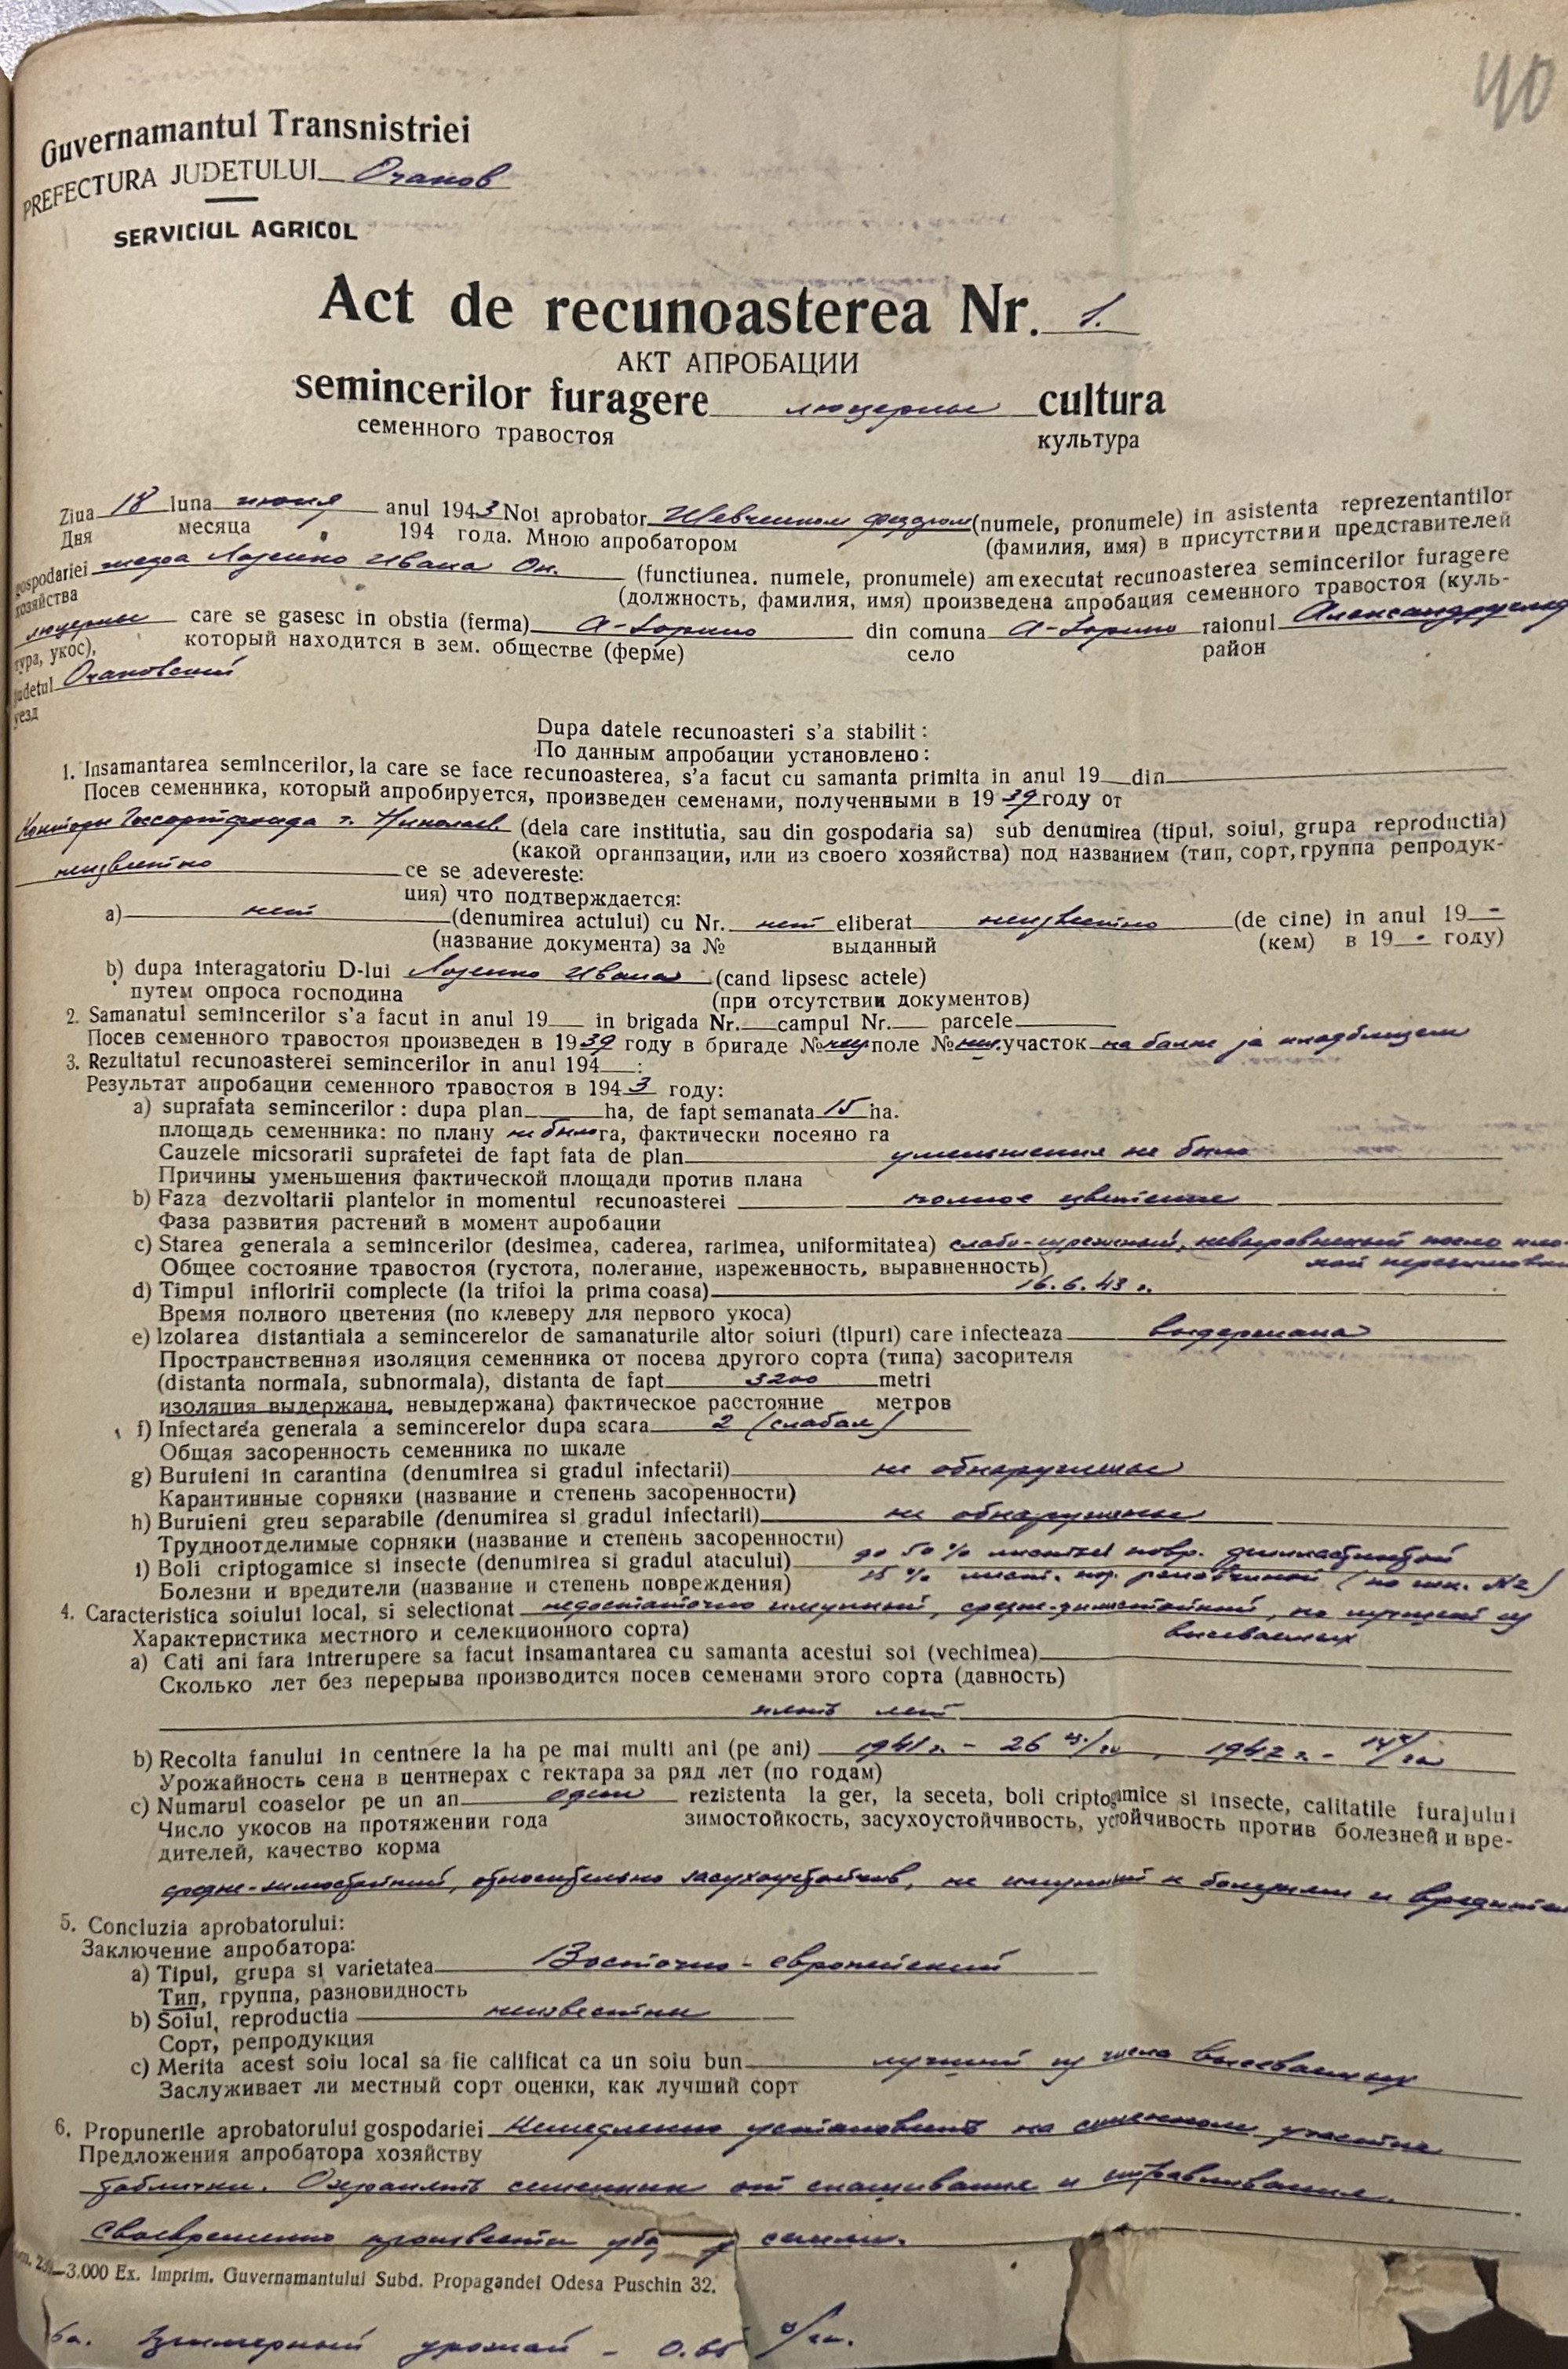 40
Guvernamantul Transnistriei
PREFECTURA JUDETULUI Очаков
SERVICIUL AGRICOL
Act de recunoasterea Nr. 1.
АКТ АПРОБАЦИИ
semincerilor furagere люцерны cultura
семенного травостоя культура
Ziua 18 luna июня anul 1943 Noi aprobator Шевченком Федором (numele, pronumele) in asistenta reprezentantilor
Дня месяца 194 года. Мною апробатором (фамилия, имя) в присутствии представителей
gospodariei Лозенко Ивана Он. (functiunea. numele, pronumele) am executat recunoasterea semincerilor furagere
хозяйства (должность, фамилия, имя) произведена апробация семенного травостоя (куль-
люцерны care se gasesc in obstia (ferma) din comuna raionul
тура, укос), который находится в зем. обществе (ферме) село район
judetul Очаковский
уезд
Dupa datele recunoasteri s'a stabilit:
По данным апробации установлено:
1. Insamantarea semincerilor, la care se face recunoasterea, s'a facut cu samanta primita in anul 19 din
Посев семенника, который апробируется, произведен семенами, полученными в 1939 году от
Конторы Госсортфонда г. Николаев (dela care institutia, sau din gospodaria sa) sub denumirea (tipul, soiul, grupa reproductia)
(какой органпзации, или из своего хозяйства) под названием (тип, сорт, группа репродук-
неизвестно ce se adevereste:
ция) что подтверждается:
a) нет (denumirea actului) cu Nr. нет eliberat неизвестно (de cine) in anul 19 -
(название документа) за № выданный (кем) в 19 - году)
b) dupa interagatoriu D-lui Лозенко Ивана (cand lipsesc actele)
путем опроса господина (при отсутствии документов)
2. Samanatul semincerilor s'a facut in anul 19 in brigada Nr. campul Nr. parcele
Посев семенного травостоя произведен в 1939 году в бригаде № поле № участок на балке за кладбищем
3. Rezultatul recunoasterei semincerilor in anul 194 :
Результат апробации семенного травостоя в 1943 году:
a) suprafata semincerilor: dupa plan ha, de fapt semanata 15 ha.
площадь семенника: по плану не было га, фактически посеяно га
Cauzele micsorarii suprafetei de fapt fata de plan уменьшения не было
Причины уменьшения фактической площади против плана
b) Faza dezvoltarii plantelor in momentul recunoasterei полное цветение
Фаза развития растений в момент апробации
c) Starea generala a semincerilor (desimea, caderea, rarimea, uniformitatea) слабо-изреженный, невыравненный после
Общее состояние травостоя (густота, полегание, изреженность, выравненность)
d) Timpul infloririi complecte (la trifoi la prima coasa) 16.6.43 г.
Время полного цветения (по клеверу для первого укоса)
e) Izolarea distantiala a semincerelor de samanaturile altor soiuri (tipuri) care infecteaza выдержана
Пространственная изоляция семенника от посева другого сорта (типа) засорителя
(distanta normala, subnormala), distanta de fapt 3200 metri
изоляция выдержана, невыдержана) фактическое расстояние метров
f) Infectarea generala a semincerelor dupa scara 2 (слабая)
Общая засоренность семенника по шкале
g) Buruieni in carantina (denumirea si gradul infectarii) не обнаружены
Карантинные сорняки (название и степень засоренности)
h) Buruieni greu separabile (denumirea si gradul infectarii) не обнаружены
Трудноотделимые сорняки (название и степень засоренности)
i) Boli criptogamice si insecte (denumirea si gradul atacului) до 50% листьев повр.
Болезни и вредители (название и степень повреждения) 15% лист. пор. ржавчиной (по шк. №2)
4. Caracteristica soiului local, si selectionat недостаточно имунный, но лучший из
Характеристика местного и селекционного сорта) высеваемых
a) Cati ani fara intrerupere sa facut insamantarea cu samanta acestui soi (vechimea)
Сколько лет без перерыва производится посев семенами этого сорта (давность)
пять лет
b) Recolta fanului in centnere la ha pe mai multi ani (pe ani) 1941 г. - 26 ц/га, 1942 г. - 14 ц/га
Урожайность сена в центнерах с гектара за ряд лет (по годам)
c) Numarul coaselor pe un an один rezistenta la ger, la seceta, boli criptogamice si insecte, calitatile furajului
Число укосов на протяжении года зимостойкость, засухоустойчивость, устойчивость против болезней и вре-
дителей, качество корма
средне-зимостойкий, относительно засухоустойчив, не имунный к болезням и вредителям
5. Concluzia aprobatorului:
Заключение апробатора:
a) Tipul, grupa si varietatea Восточно-европейский
Тип, группа, разновидность
b) Soiul, reproductia неизвестны
Сорт, репродукция
c) Merita acest soiu local sa fie calificat ca un soiu bun лучший из числа высеваемых
Заслуживает ли местный сорт оценки, как лучший сорт
6. Propunerile aprobatorului gospodariei Немедленно установить на семенном участке
Предложения апробатора хозяйству
таблички. Охранять семенник от скашивания и вытравливания.
Своевременно произвести семян.
3.000 Ex. Imprim. Guvernamantului Subd. Propagandei Odesa Puschin 32.
6а. Примерный урожай - 0.65 ц/га.